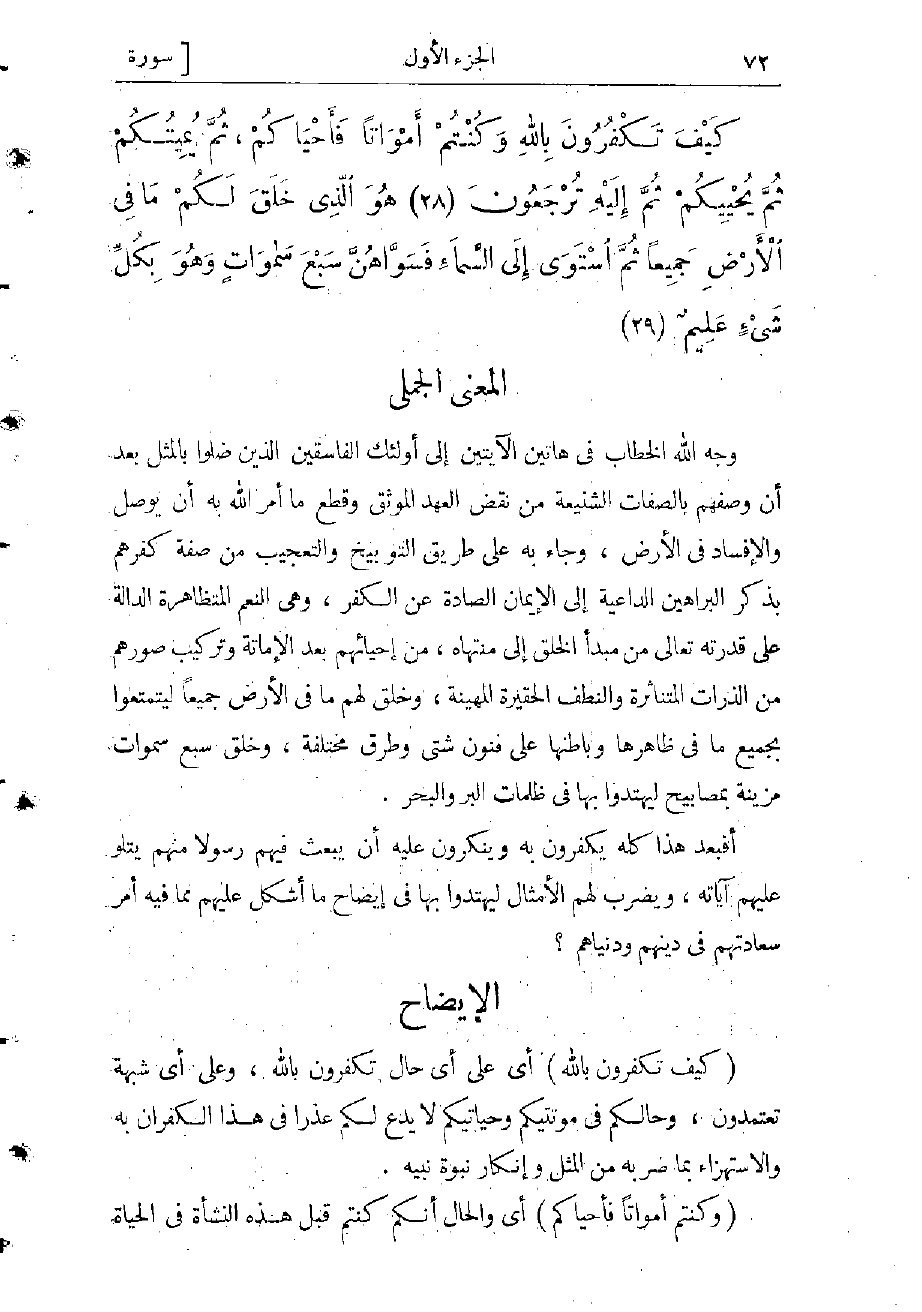 ٧٢ الجزء الأول [ سورة
كَيْفَ تَكْفُرُونَ بِاللهِ وَكُنْتُمْ أَمْوَاتاً فَأَحْيَاكُمْ ، ثُمَّ يُمِيتُكُمْ
ثُمَّ يُحْيِيكُمْ ثُمَّ إِلَيْهِ تُرْجَعُونَ (٢٨) هُوَ ٱلَّذِى خَلَقَ لَكُمْ مَا فِى
ٱلْأَرْضِ جَمِيعاً ثُمَّ ٱسْتَوَى إِلَى السَّمَاءِ فَسَوَّاهُنَّ سَبْعَ سَمٰوَاتٍ وَهُوَ بِكُلِّ
شَىْءٍ عَلِيمٌ (٢٩)
المعنى الجملى
وجه الله الخطاب فى هاتين الآيتين إلى أولئك الفاسقين الذين ضلوا بالمثل بعد
أن وصفهم بالصفات الشنيعة من نقض العهد الموثق وقطع ما أمر الله به أن يوصل
والإفساد فى الأرض ، وجاء به على طريق التوبيخ والتعجيب من صفة كفرهم
بذكر البراهين الداعية إلى الإيمان الصادة عن الكفر ، وهى النعم المتظاهرة الدالة
على قدرته تعالى من مبدأ الخلق إلى منتهاه ، من إحيائهم بعد الإماتة وتركيب صورهم
من الذرات المتناثرة والنطف الحقيرة المهينة ، وخلق لهم ما فى الأرض جميعاً ليتمتعوا
بجميع ما فى ظاهرها وباطنها على فنون شتى وطرق مختلفة ، وخلق سبع سموات
مزينة بمصابيح ليهتدوا بها فى ظلمات البر والبحر .
أفبعد هذا كله يكفرون به وينكرون عليه أن يبعث فيهم رسولا منهم يتلو
عليهم آياته ، ويضرب لهم الأمثال ليهتدوا بها فى إيضاح ما أشكل عليهم مما فيه أمر
سعادتهم فى دينهم ودنياهم ؟
الإيضاح
( كيف تكفرون بالله ) أى على أى حال تكفرون بالله ، وعلى أى شبهة
تعتمدون ، وحالكم فى موتتيكم وحياتيكم لا يدع لكم عذرا فى هذا الكفران به
والاستهزاء بما ضربه من المثل وإنكار نبوة نبيه .
( وكنتم أمواتاً فأحياكم ) أى والحال أنكم كنتم قبل هذه النشأة فى الحياة